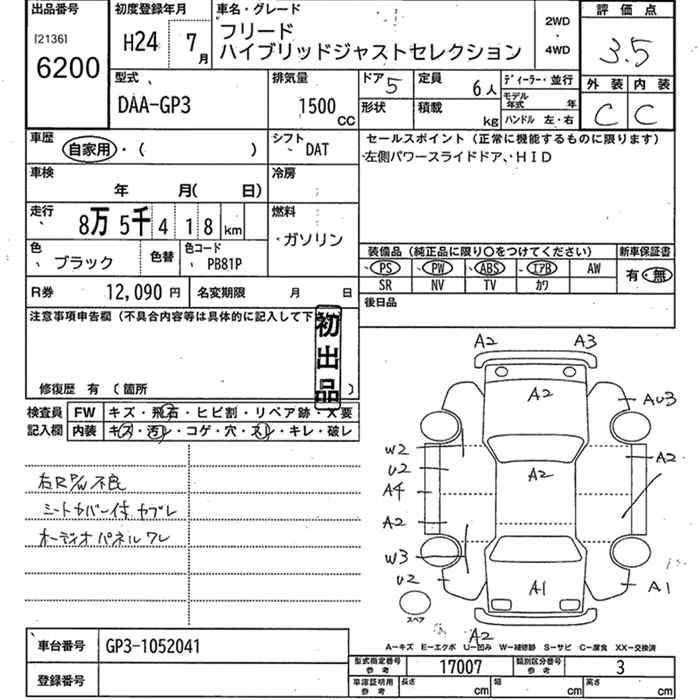 出品番号
[2136]
6200
初度登録年月
H24 7月
車名・グレード
フリード
ハイブリッドジャストセレクション
2WD
・
4WD
評価点
3.5
外装 内装
C C
型式
DAA-GP3
排気量
1500
CC
ドア 5
定員 6人
形状
積載 kg
ディーラー・並行
モデル年式 年
ハンドル 左・右
車歴
自家用・( )
シフト
DAT
セールスポイント(正常に機能するものに限ります)
左側パワースライドドア、HID
車検
年 月( 日)
冷房
走行
8万5千418km
燃料
ガソリン
色
ブラック
色替
色コード
PB81P
装備品(純正品に限り○をつけてください)
PS PW ABS エアB AW
SR NV TV カワ
新車保証書
有・無
R券 12,090円
名変期限 月 日
後日品
注意事項申告欄(不具合内容等は具体的に記入して下
初出品
修復歴 有(箇所
検査員
記入欄
FW キズ・飛石・ヒビ割・リペア跡・X要
内装 キズ・汚レ・コゲ・穴・スレ・キレ・破レ
右R P/W 不良
シートカバー付 ヤブレ
オーディオパネルワレ
A2 A3
A2
AU3
W2
U2
A2
A2
A4
A2
W3
U2
A1
A1
スペア
A2
A-キズ E-エクボ U-凹み W-補修跡 S-サビ C-腐食 XX-交換済
車台番号 GP3-1052041
登録番号
型式指定番号
参考
17007
類別区分番号
参考
3
車庫証明用
参考
長さ cm 幅 cm 高さ cm